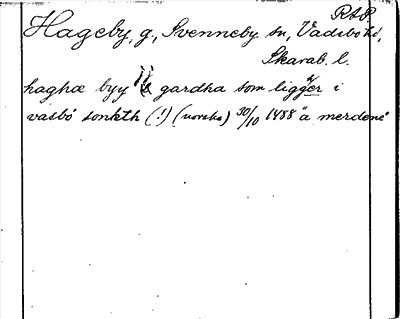 RAP.
Hageby, g., Svenneby sn, Vadsbo hd,
Skarab. l.
haghæ byy ij gardha som ligger i
vasbo sonkth (!) (norska) 30/10 1488 "a merdene"